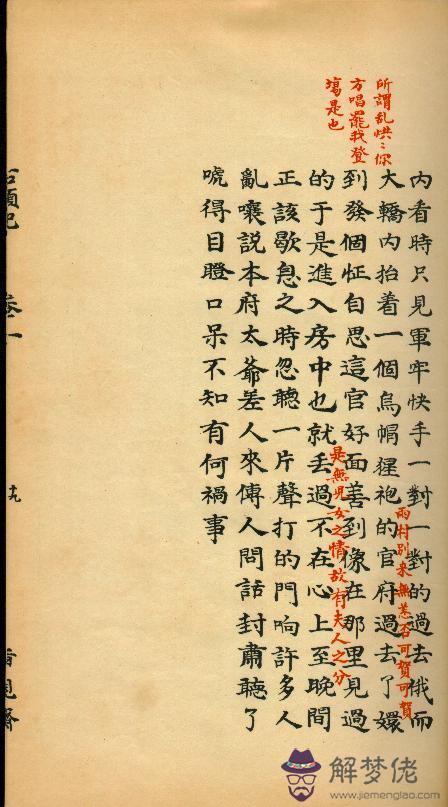 所謂乱烘〻你
方唱罷我登
塲是也
内看時只見軍牢快手一對一對的過去俄而
大轎内抬着一個烏帽猩袍的官府過去了嬛
雨村別來無恙否可賀可賀
到發個怔自思這官好面善到像在那里見過
的于是進入房中也就丢過不在心上至晚間
是無兒女之情故有夫人之分
正該歇息之時忽聽一片聲打的門响許多人
亂嚷説本府太爺差人來傳人問話封肅聽了
唬得目瞪口呆不知有何禍事
石頭記
卷一
十九
脂硯齋
解梦佬
www.jiemenglao.com